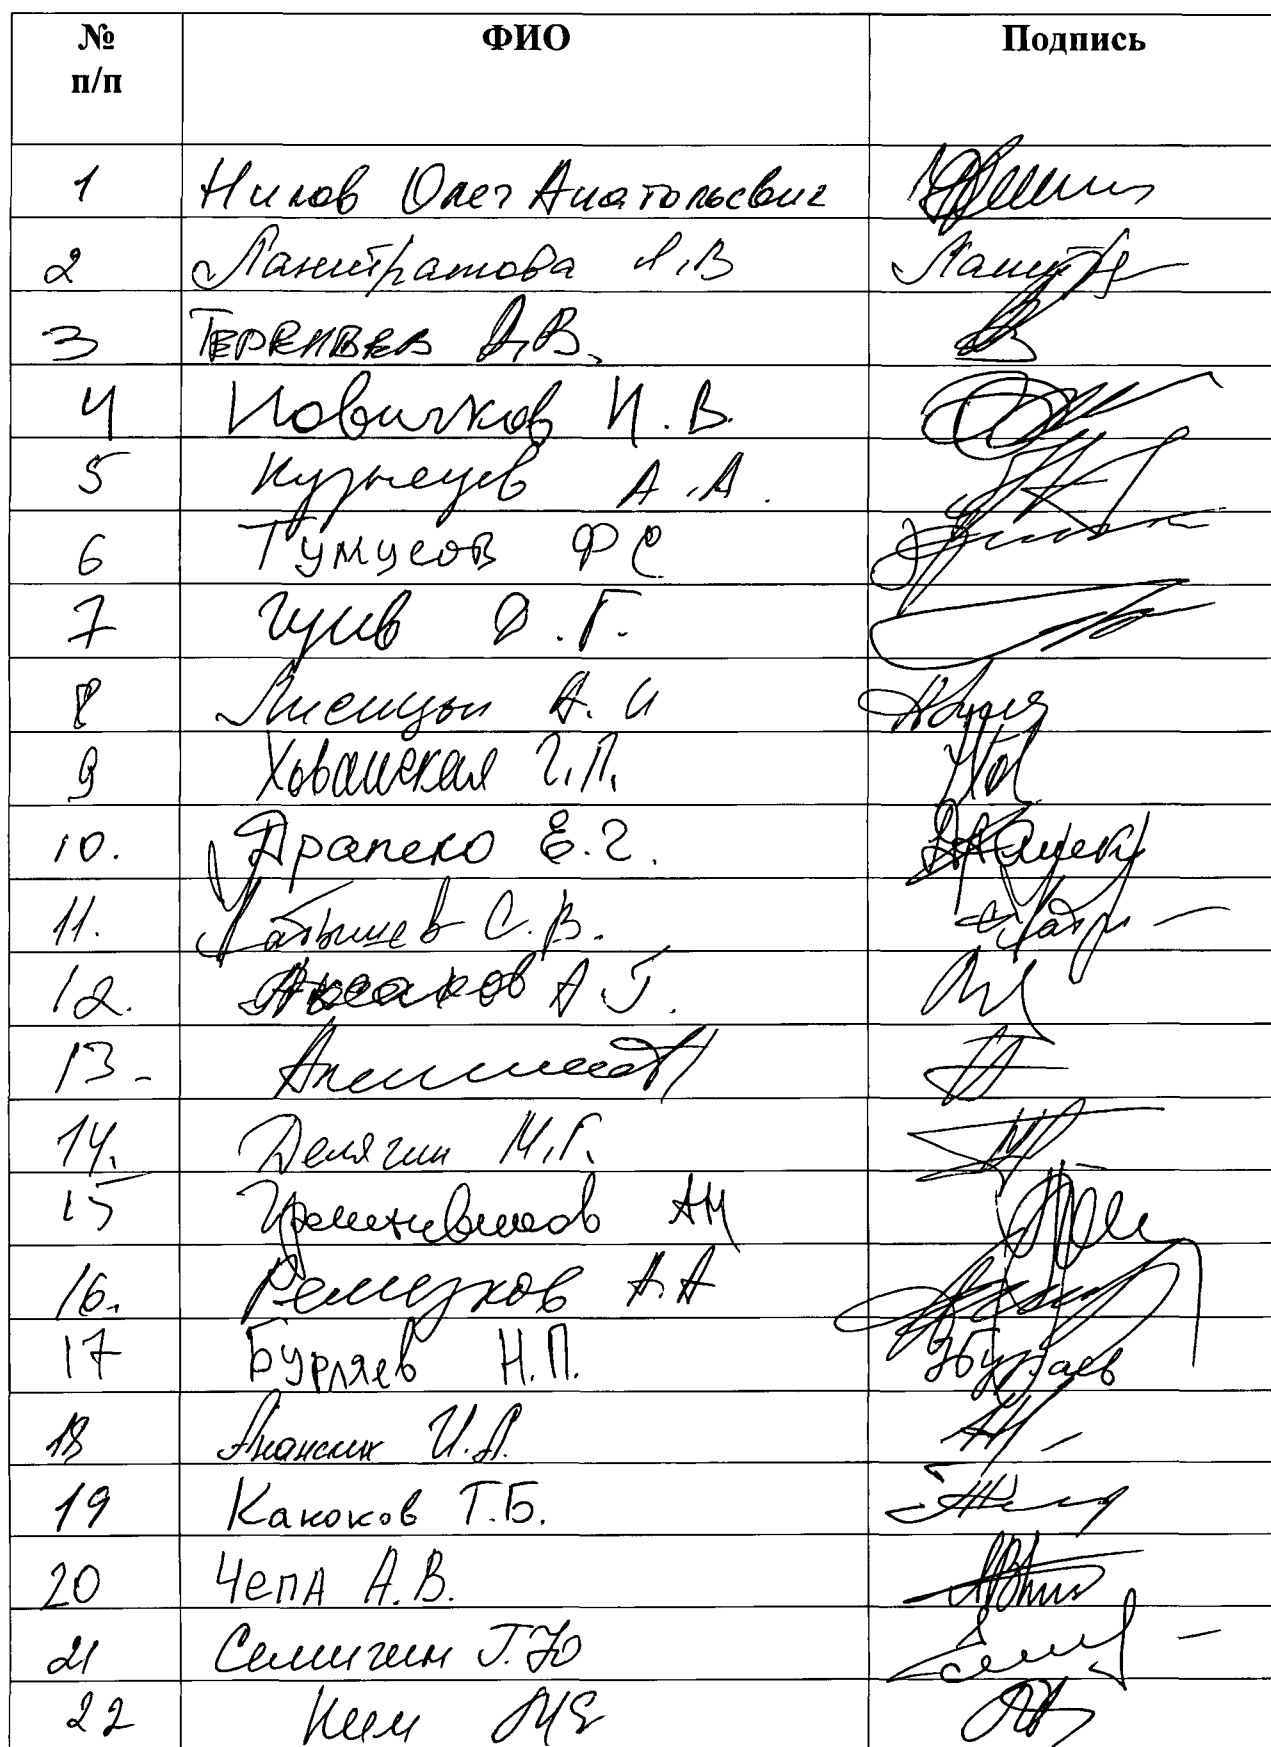 № п/п ФИО Подпись
1 Нилов Олег Анатольевич
2 Лантратова Я.В
3 Терентьев А.В.
4 Новичков Н.В.
5 Кузнецов А.А.
6 Тумусов ФС
7 Гусев Д.Г.
8 Лисицын А.И
9 Хованская Г.П.
10. Драпеко Е.Г.
11. Лабышев С.В.
12. Аксаков А Г.
13.
14. Делягин М.Г.
15 Грешневиков АН
16. Ремезков А.А
17 Бурляев Н.П.
18 Ананских И.А.
19 Каноков Т.Б.
20 Чепа А.В.
21 Семигин Г.Ю
22 Ким